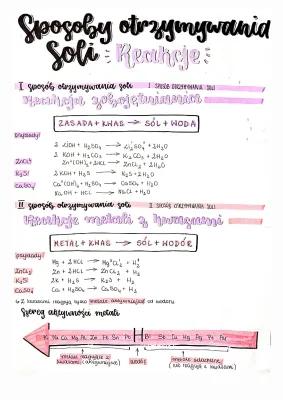 Sposoby otrzymywania
Soli : Reakcje :
I sposób otrzymywania soli I SPOSÓB OTRZYMYWANIA SOLI
Reakcja zobojętniania
ZASADA + KWAS → SÓL + WODA
przykłady:
2 LiOH + H₂SO₄ → Li₂SO₄ + 2H₂O
2 KOH + H₂CO₃ → K₂CO₃ + 2H₂O
ZnCl₂: Zn(OH)₂ + 2HCl → ZnCl₂ + 2H₂O
K₂S: 2 KOH + H₂S → K₂S + 2H₂O
CaSO₄: Ca(OH)₂ + H₂SO₄ → CaSO₄ + H₂O
NaOH + HCl → NaCl + H₂O
II sposób otrzymywania soli II SPOSÓB OTRZYMYWANIA SOLI
Reakcje metali z kwasami
METAL + KWAS → SÓL + WODÓR
przykłady:
Mg + 2HCl → MgCl₂ + H₂
ZnCl₂: Zn + 2HCl → ZnCl₂ + H₂
K₂S: 2K + H₂S → K₂S + H₂
CaSO₄: Ca + H₂SO₄ → CaSO₄ + H₂
Z kwasami reagują tylko metale aktywniejsze od wodoru
Szereg aktywności metali
K Na Ca Mg Al Zn Fe Sn Pb H Bi Cu Hg Ag Pt Au
metale reagujące z kwasami (aktywne)
wodór
metale szlachetne (nie reagują z kwasami)